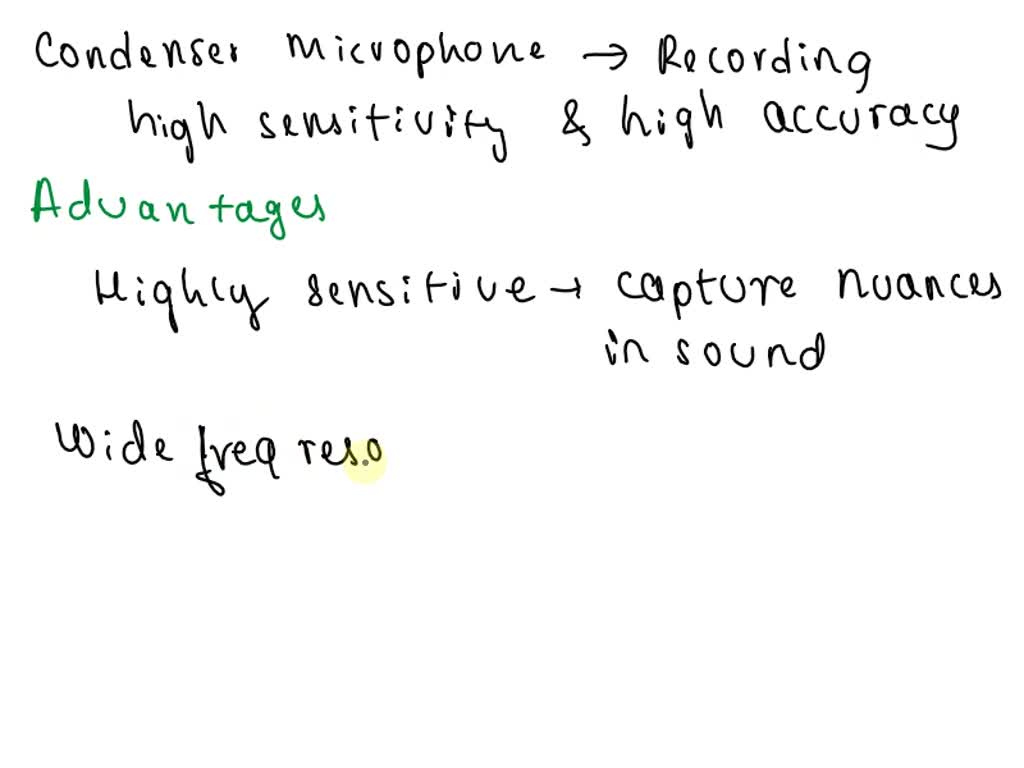 Condenser Microphone → Recording
high sensitivity & high accuracy
Advantages
Highly sensitive → capture nuances
in sound
Wide freq reso